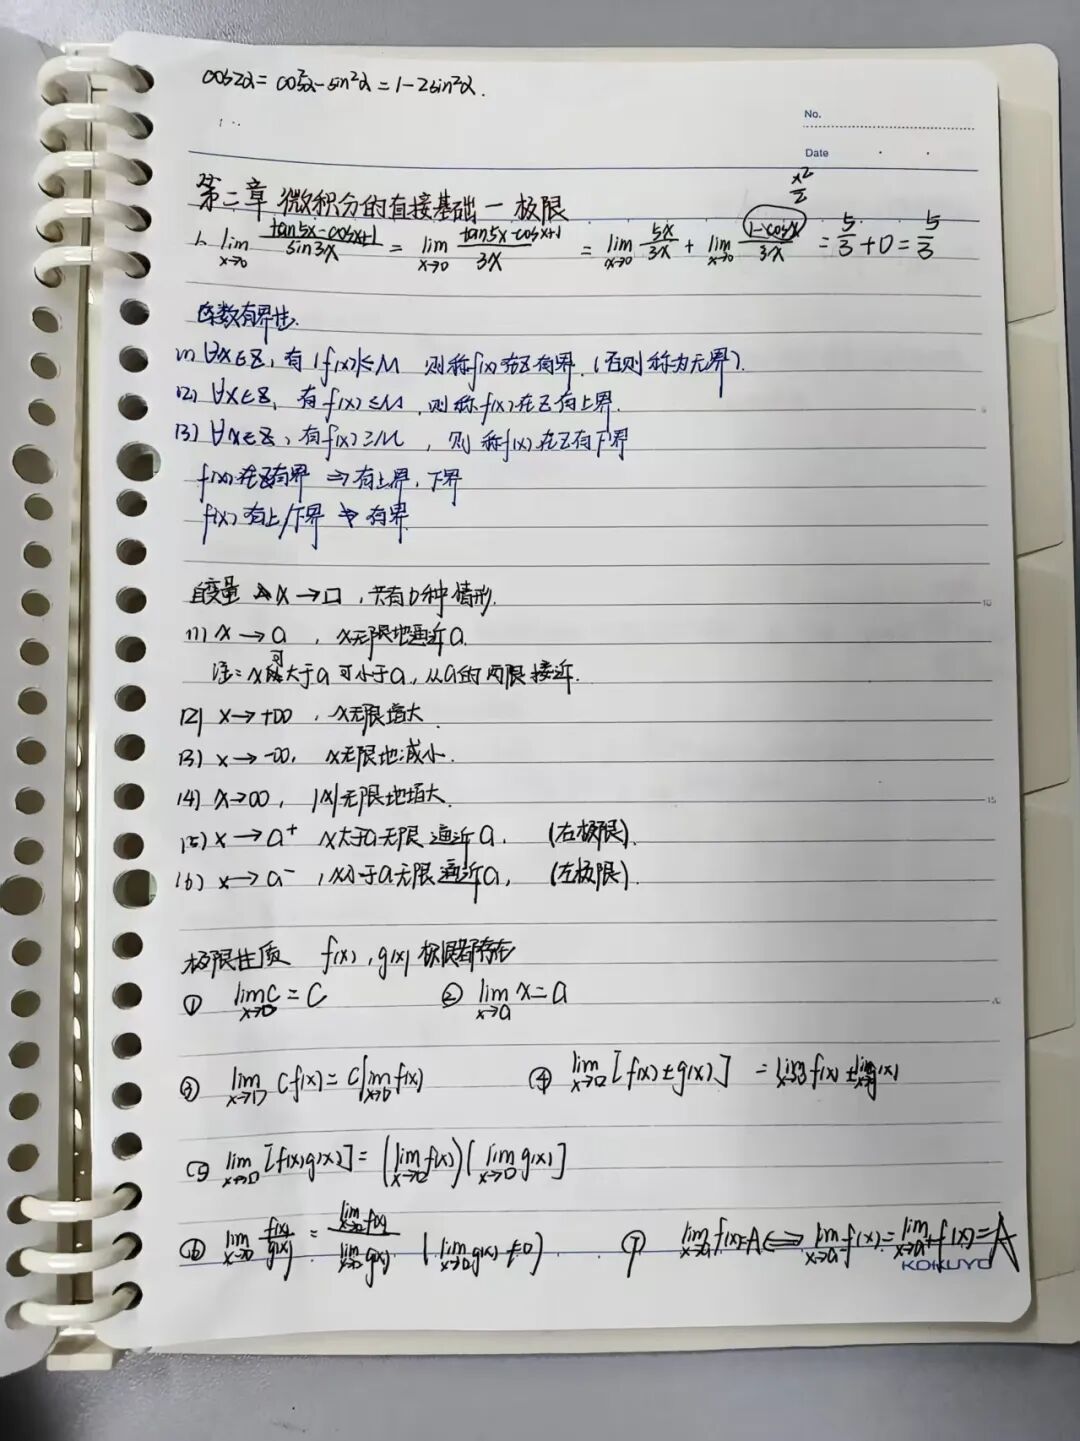 cos2α = cos²α - sin²α = 1 - 2sin²α.
No.
Date
第二章 微积分的直接基础 — 极限
x²/2
1. lim x→0 (tan5x - cosx+1)/sin3x = lim x→0 (tan5x - cosx+1)/3x = lim x→0 5x/3x + lim x→0 (1-cosx)/3x = 5/3 + 0 = 5/3
函数有界性.
(1) ∀x∈Z, 有|f(x)|≤M 则称f(x)在Z有界.(否则称为无界).
(2) ∀x∈Z, 有f(x)≤M, 则称f(x)在Z有上界.
(3) ∀x∈Z, 有f(x)≥M, 则称f(x)在Z有下界
f(x)在Z有界 ⇒ 有上界, 下界
f(x)有上/下界 ⇏ 有界.
自变量 x→□, 共有6种情形.
(1) x→a, x无限地逼近a.
注: x可大于a可小于a, 从a的两侧接近.
(2) x→+∞, x无限增大.
(3) x→-∞, x无限地减小.
(4) x→∞, |x|无限地增大.
(5) x→a⁺ x大于a无限逼近a. (右极限).
(6) x→a⁻, x小于a无限逼近a, (左极限).
极限性质 f(x), g(x) 极限都存在
① lim x→□ C = C ② lim x→a x = a
③ lim x→□ Cf(x) = C lim x→□ f(x) ④ lim x→□ [f(x)±g(x)] = lim x→□ f(x) ± lim x→□ g(x)
⑤ lim x→□ [f(x)g(x)] = (lim x→□ f(x))(lim x→□ g(x))
⑥ lim x→□ f(x)/g(x) = lim x→□ f(x) / lim x→□ g(x) (lim x→□ g(x) ≠ 0) ⑦ lim x→a f(x)=A ⟺ lim x→a⁻ f(x) = lim x→a⁺ f(x) = A
KOKUYO